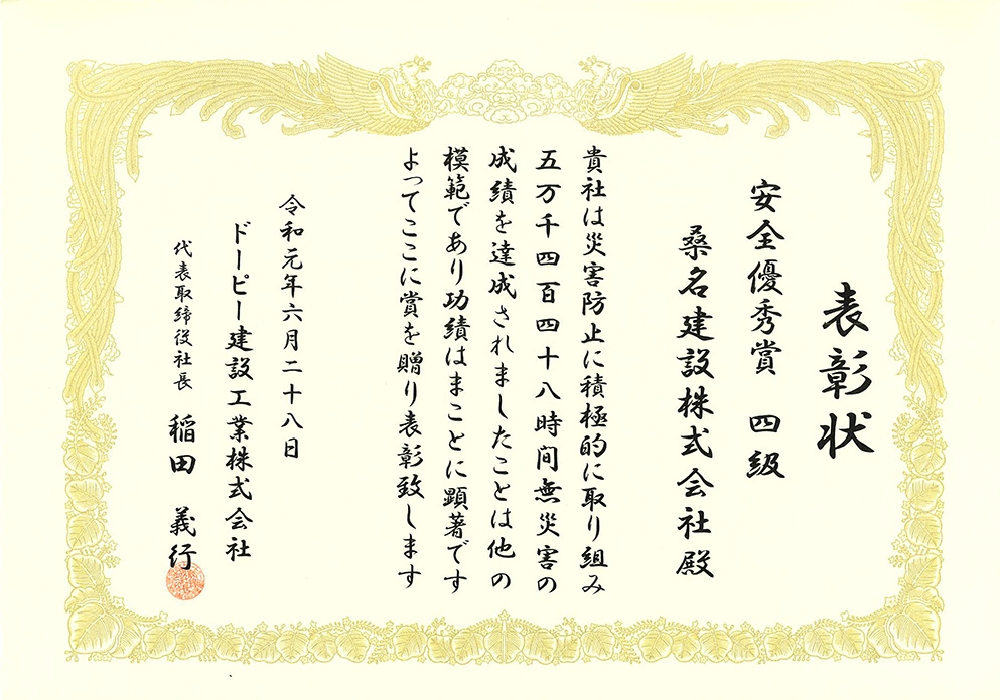 表彰状
安全優秀賞 四級
桑名建設株式会社殿
貴社は災害防止に積極的に取り組み
五万千四百四十八時間無災害の
成績を達成されましたことは他の
模範であり功績はまことに顕著です
よってここに賞を贈り表彰致します
令和元年六月二十八日
ドーピー建設工業株式会社
代表取締役社長 稲田 義行